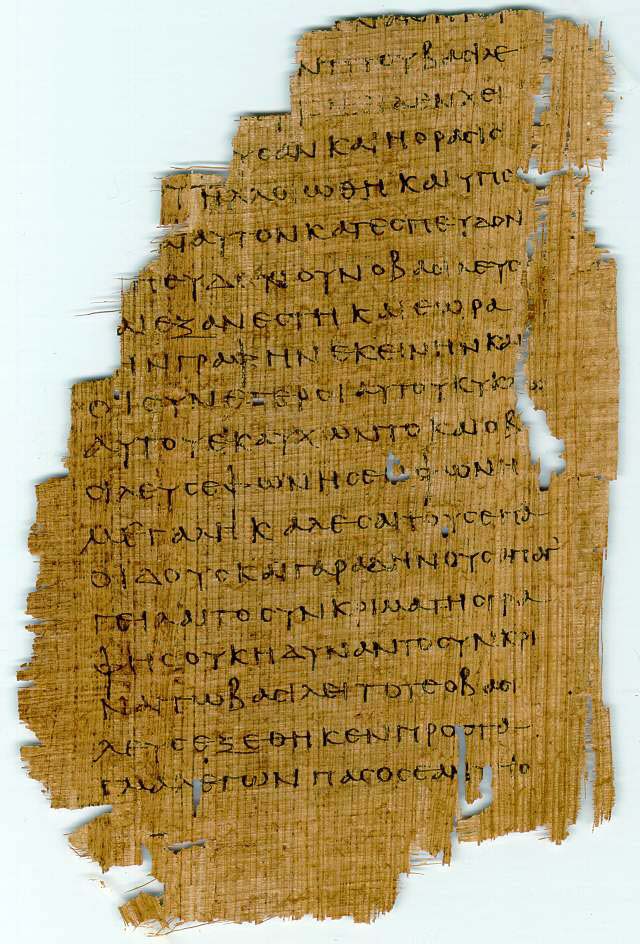 ΝΤΙ ΤΟΥ ΒΑϹΙΛΕ
ΧΕΙ
ΥϹΑΝ ΚΑΙ Η ΟΡΑϹΙϹ
ΗΛΛΟΙΩΘΗ ΚΑΙ ΥΠΟ
ΑΙ ΑΥΤΟΝ ΚΑΤΕϹΠΕΥΔΟΝ
ΟΥΝ Ο ΒΑϹΙΛΕΥϹ
ΑΙ ΕΞΑΝΕϹΤΗ ΚΑΙ ΕΩΡΑ
ΙΝ ΓΡΑΦΗΝ ΕΚΕΙΝΗΝ ΚΑΙ
ΟΙ ϹΥΝΕΤΕΡΟΙ ΑΥΤΟΥ ΚΥΚΛ
ΑΥΤΟΥ ΕΚΑΥΧΩΝΤΟ ΚΑΙ Ο Β
ϹΙΛΕΥϹ ΕΦΩΝΗϹΕ ΦΩΝΗ
ΜΕΓΑΛΗ ΚΑΛΕϹΑΙ ΤΟΥϹ ΕΠΑ
ΟΙΔΟΥϹ ΚΑΙ ΓΑΡΑΔΗΝΟΥϹ ΑΠΑΓ
ΓΕΙΛΑΙ ΤΟ ϹΥΝΚΡΙΜΑ ΤΗϹ ΓΡΑ
ΦΗϹ ΟΥΚ ΗΔΥΝΑΝΤΟ ϹΥΝΚΡΙ
ΝΑΙ ΤΩ ΒΑϹΙΛΕΙ ΤΟΤΕ Ο ΒΑϹΙ
ΛΕΥϹ ΕΞΕΘΗΚΕΝ ΠΡΟϹΤΑ
ΓΜΑ ΛΕΓΩΝ ΠΑϹ ΟϹ ΕΑΝ ΥΠΟ